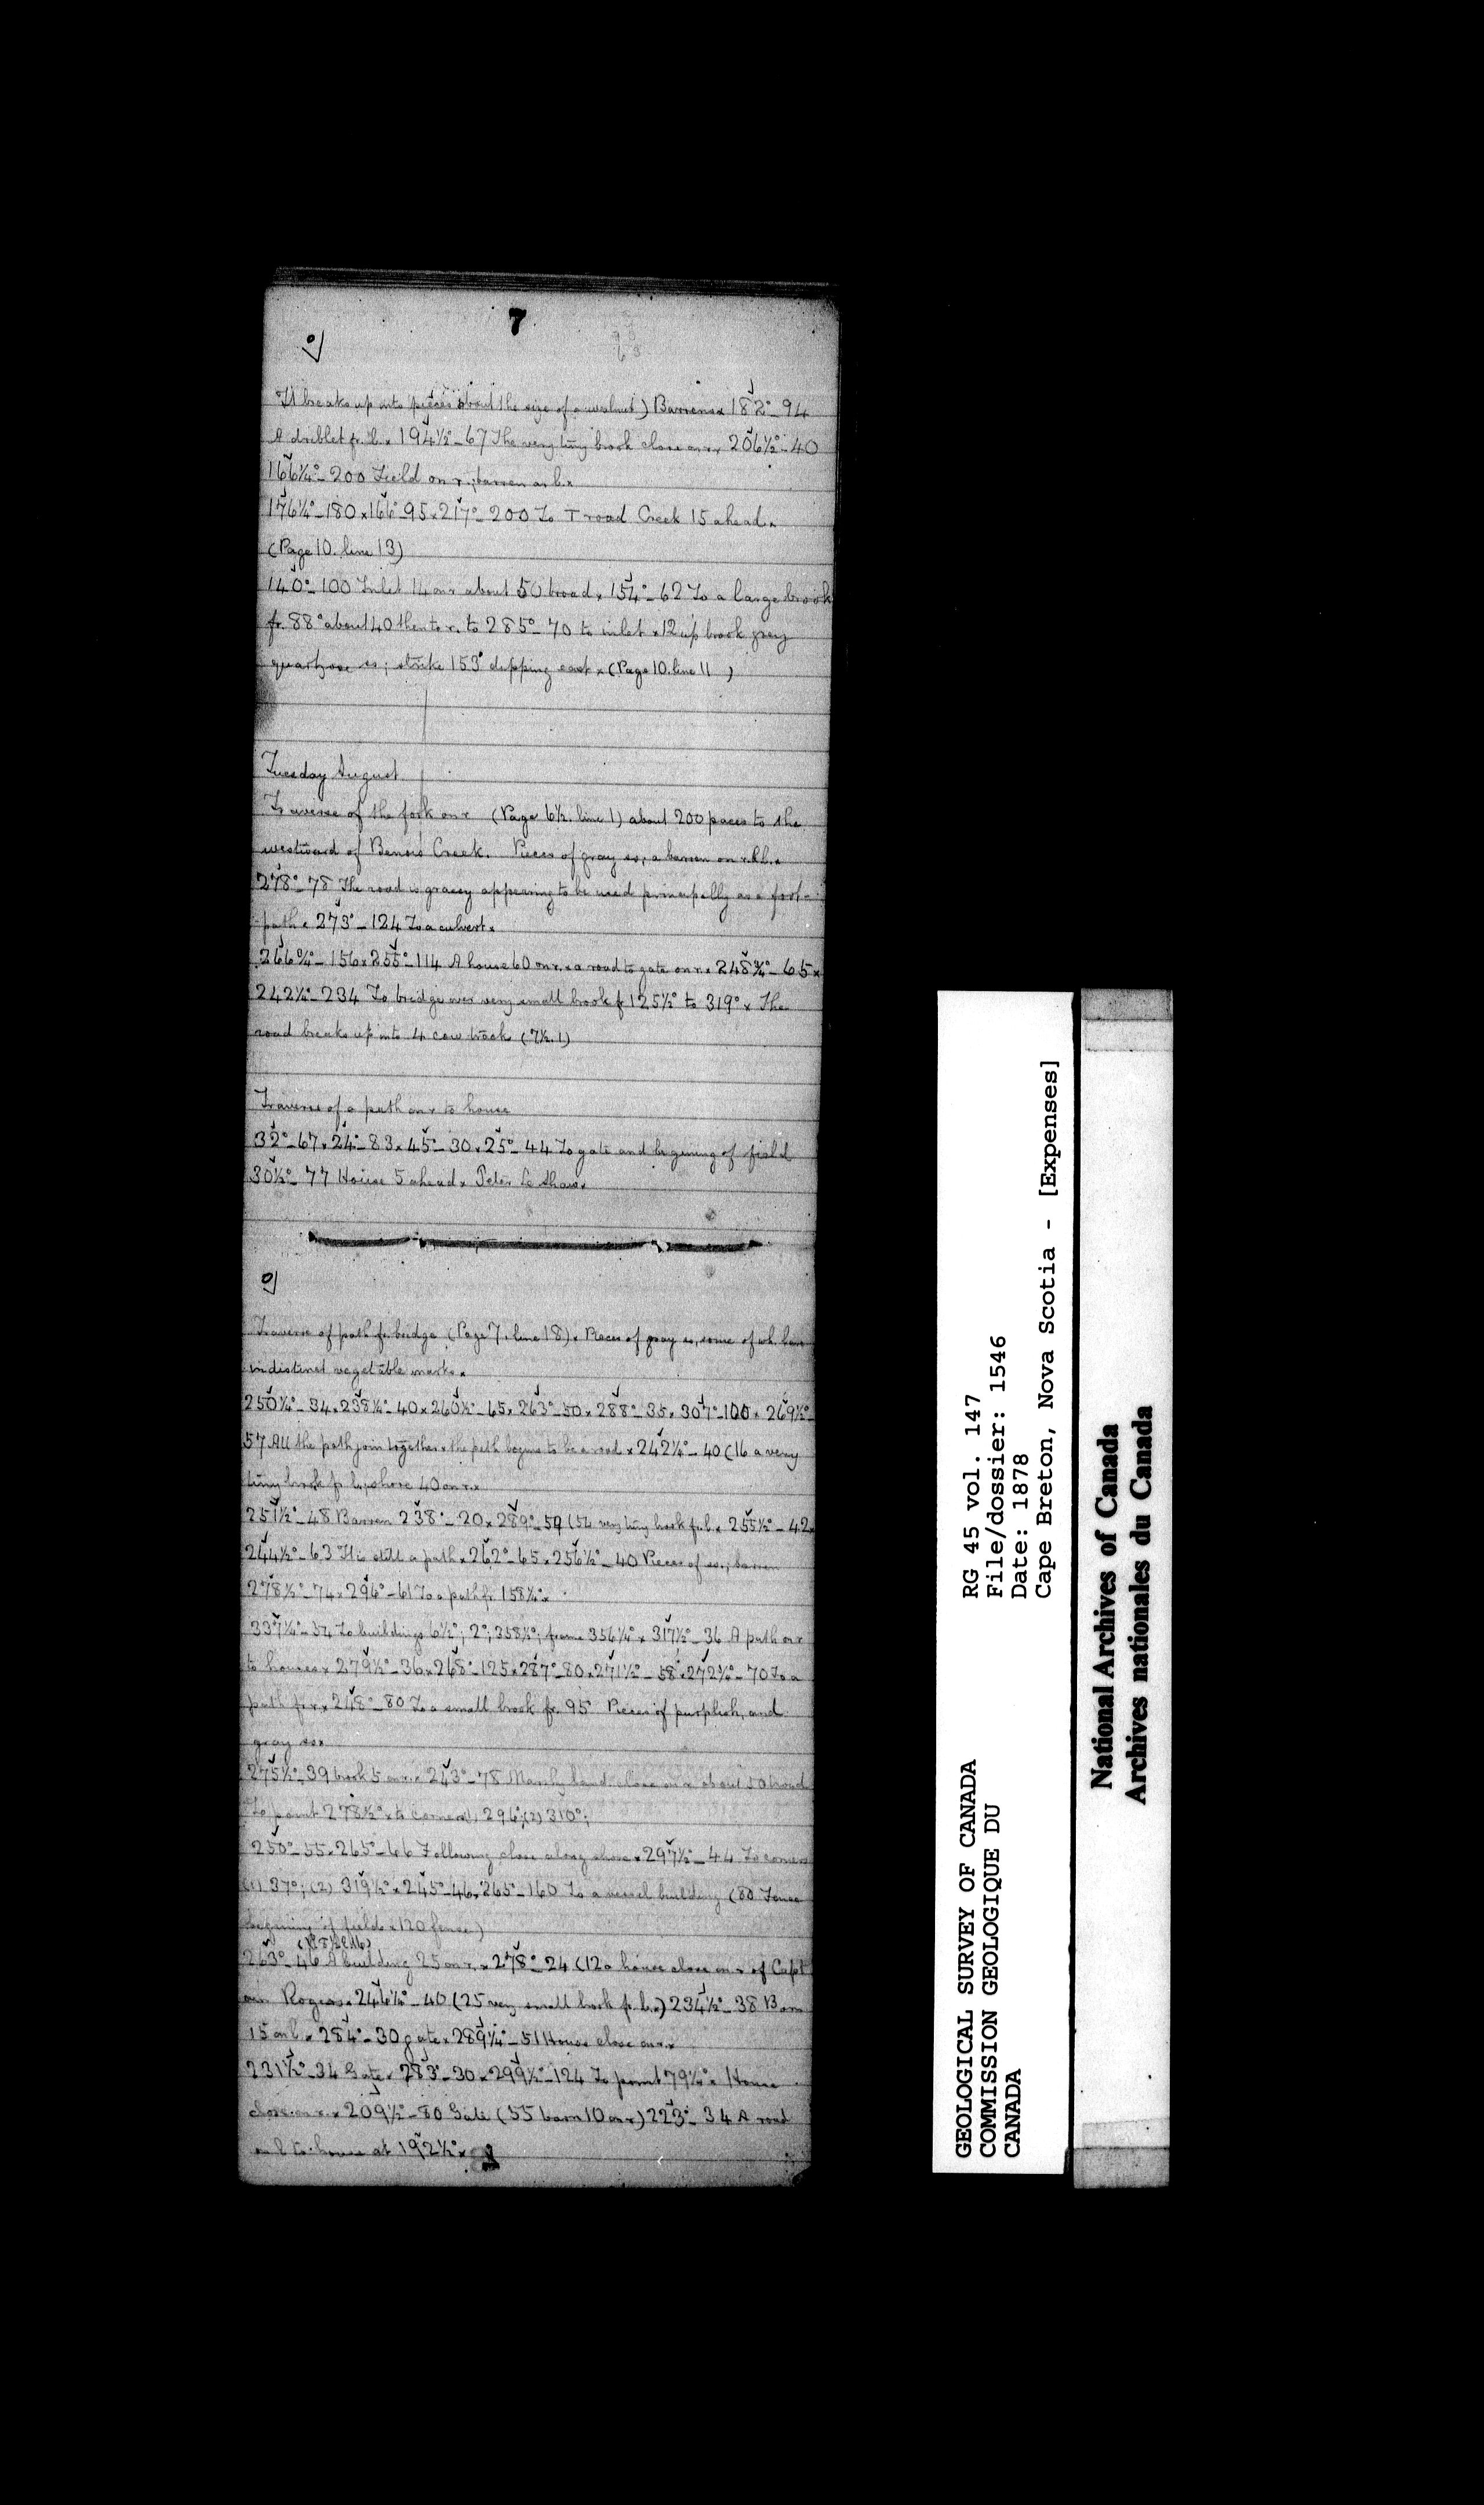 7
It breaks up into pieces about the size of a walnut) Barrens x 182° - 94
A driblet fr. l. x 194½° - 67 The very tiny brook close on r x 206½° - 40
166¼° - 200 Field on r.; barren on l. x
176¼° - 180 x 166° - 95 x 217° - 200 To T road Creek 15 ahead x
(Page 10. line 13)
140° - 100 Inlet 14 on r about 50 broad x 154° - 62 To a large brook
fr. 88° about 40 then to r. to 285° - 70 to inlet x 12 up brook gray
quartzose ss; strike 153° dipping east x (Page 10. line 11 )
Tuesday August
Traverse of the fork on r (Page 6½. line 1) about 200 paces to the
westward of Creek. Pieces of gray ss; a barren on r. & l. x
278° - 78 The road is grassy appearing to be used principally as a foot-
path x 273° - 124 To a culvert x
266¾° - 156 x 255° - 114 A house 60 on r. x a road to gate on r. x 248¾° - 65 x
242¼° - 234 To bridge over very small brook f 125½° to 319° x The
road breaks up into 4 cow track (7½. 1)
Traverse of a path on r to house
32° - 67 x 24° - 83 x 45° - 30 x 25° - 44 To gate and begining of field
30½° - 77 House 5 ahead x Peter
Traverse of path fr. bridge (Page 7. line 18) x Pieces of gray ss, some of wh. have
indistinct vegetable marks x
250¼° - 34 x 238¼° - 40 x 260½° - 65 x 263° - 50 x 288° - 35 x 307° - 100 x 269½° -
57 All the path join together x the path begins to be a road x 242¼° - 40 (16 a very
tiny brook fr l.; shore 40 on r. x
251½° - 48 Barren 238° - 20 x 289° - 59 (54 very tiny brook fr. l. x 255½° - 42 x
244½° - 63 It is still a path x 262° - 65 x 256½° - 40 Pieces of ss.; barren
278½° - 74 x 296° - 61 To a path fr. 158¼° x
337¼° - 54 To buildings 6½°; 2°; 358½°; frame 356¼° x 317½° - 36 A path on r
to houses x 279½° - 36 x 268° - 125 x 287° - 80 x 271½° - 58 x 272¾° - 70 To a
path fr r. x 248° - 80 To a small brook fr. 95° Pieces of purplish, and
gray ss x
275½° - 39 brook 5 on r. x 243° - 78 Marshy land close on r about 50 broad
To point 278½° x to corners(1) 296°; (2) 310°;
250° - 55 x 265° - 66 Following close along shore x 297½° - 44 To corners
(1) 37°; (2) 319½° x 245° - 46 x 265° - 160 To a vessel building (80 Fence
begining of field x 120 fence)
263° - 46 A building 25 on r. x 278° - 24 (12 a house close on r of Capt
ain Rogers x 246½° - 40 (25 very small brook fr. l. x) 234½° - 38 Barn
15 on l. x 284° - 30 gate x 289¼° - 51 House close on r. x
231½° - 34 Gate x 283° - 30 x 299½° - 124 To point 79¼° x House
close on r. x 209½° - 80 Gate (55 barn 10 on r) 223° - 34 A road
on l to house at 192½° x
GEOLOGICAL SURVEY OF CANADA
COMMISSION GEOLOGIQUE DU
CANADA
RG 45 vol. 147
File/dossier: 1546
Date: 1878
Cape Breton, Nova Scotia - [Expenses]
National Archives of Canada
Archives nationales du Canada